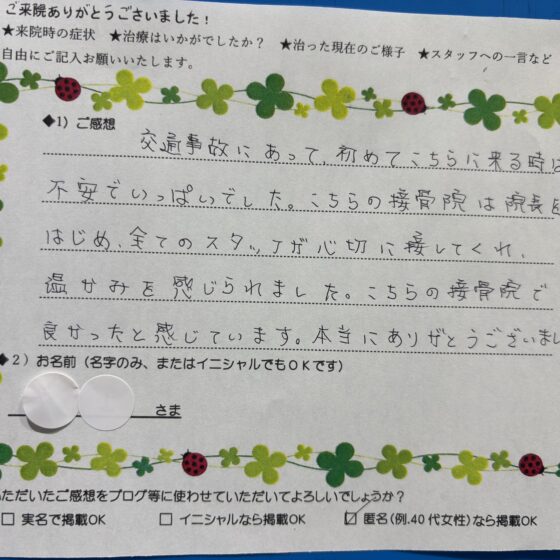 ご来院ありがとうございました！
★来院時の症状 ★治療はいかがでしたか？ ★治った現在のご様子 ★スタッフへの一言など
自由にご記入お願いいたします。
◆1）ご感想
交通事故にあって、初めてこちらに来る時は
不安でいっぱいでした。こちらの接骨院は院長を
はじめ、全てのスタッフが心切に接してくれ、
温かみを感じられました。こちらの接骨院で
良かったと感じています。本当にありがとうございまし
◆2）お名前（名字のみ、またはイニシャルでもOKです）
さま
いただいたご感想をブログ等に使わせていただいてよろしいでしょうか？
□ 実名で掲載OK □ イニシャルなら掲載OK ☑ 匿名（例.40代女性）なら掲載OK